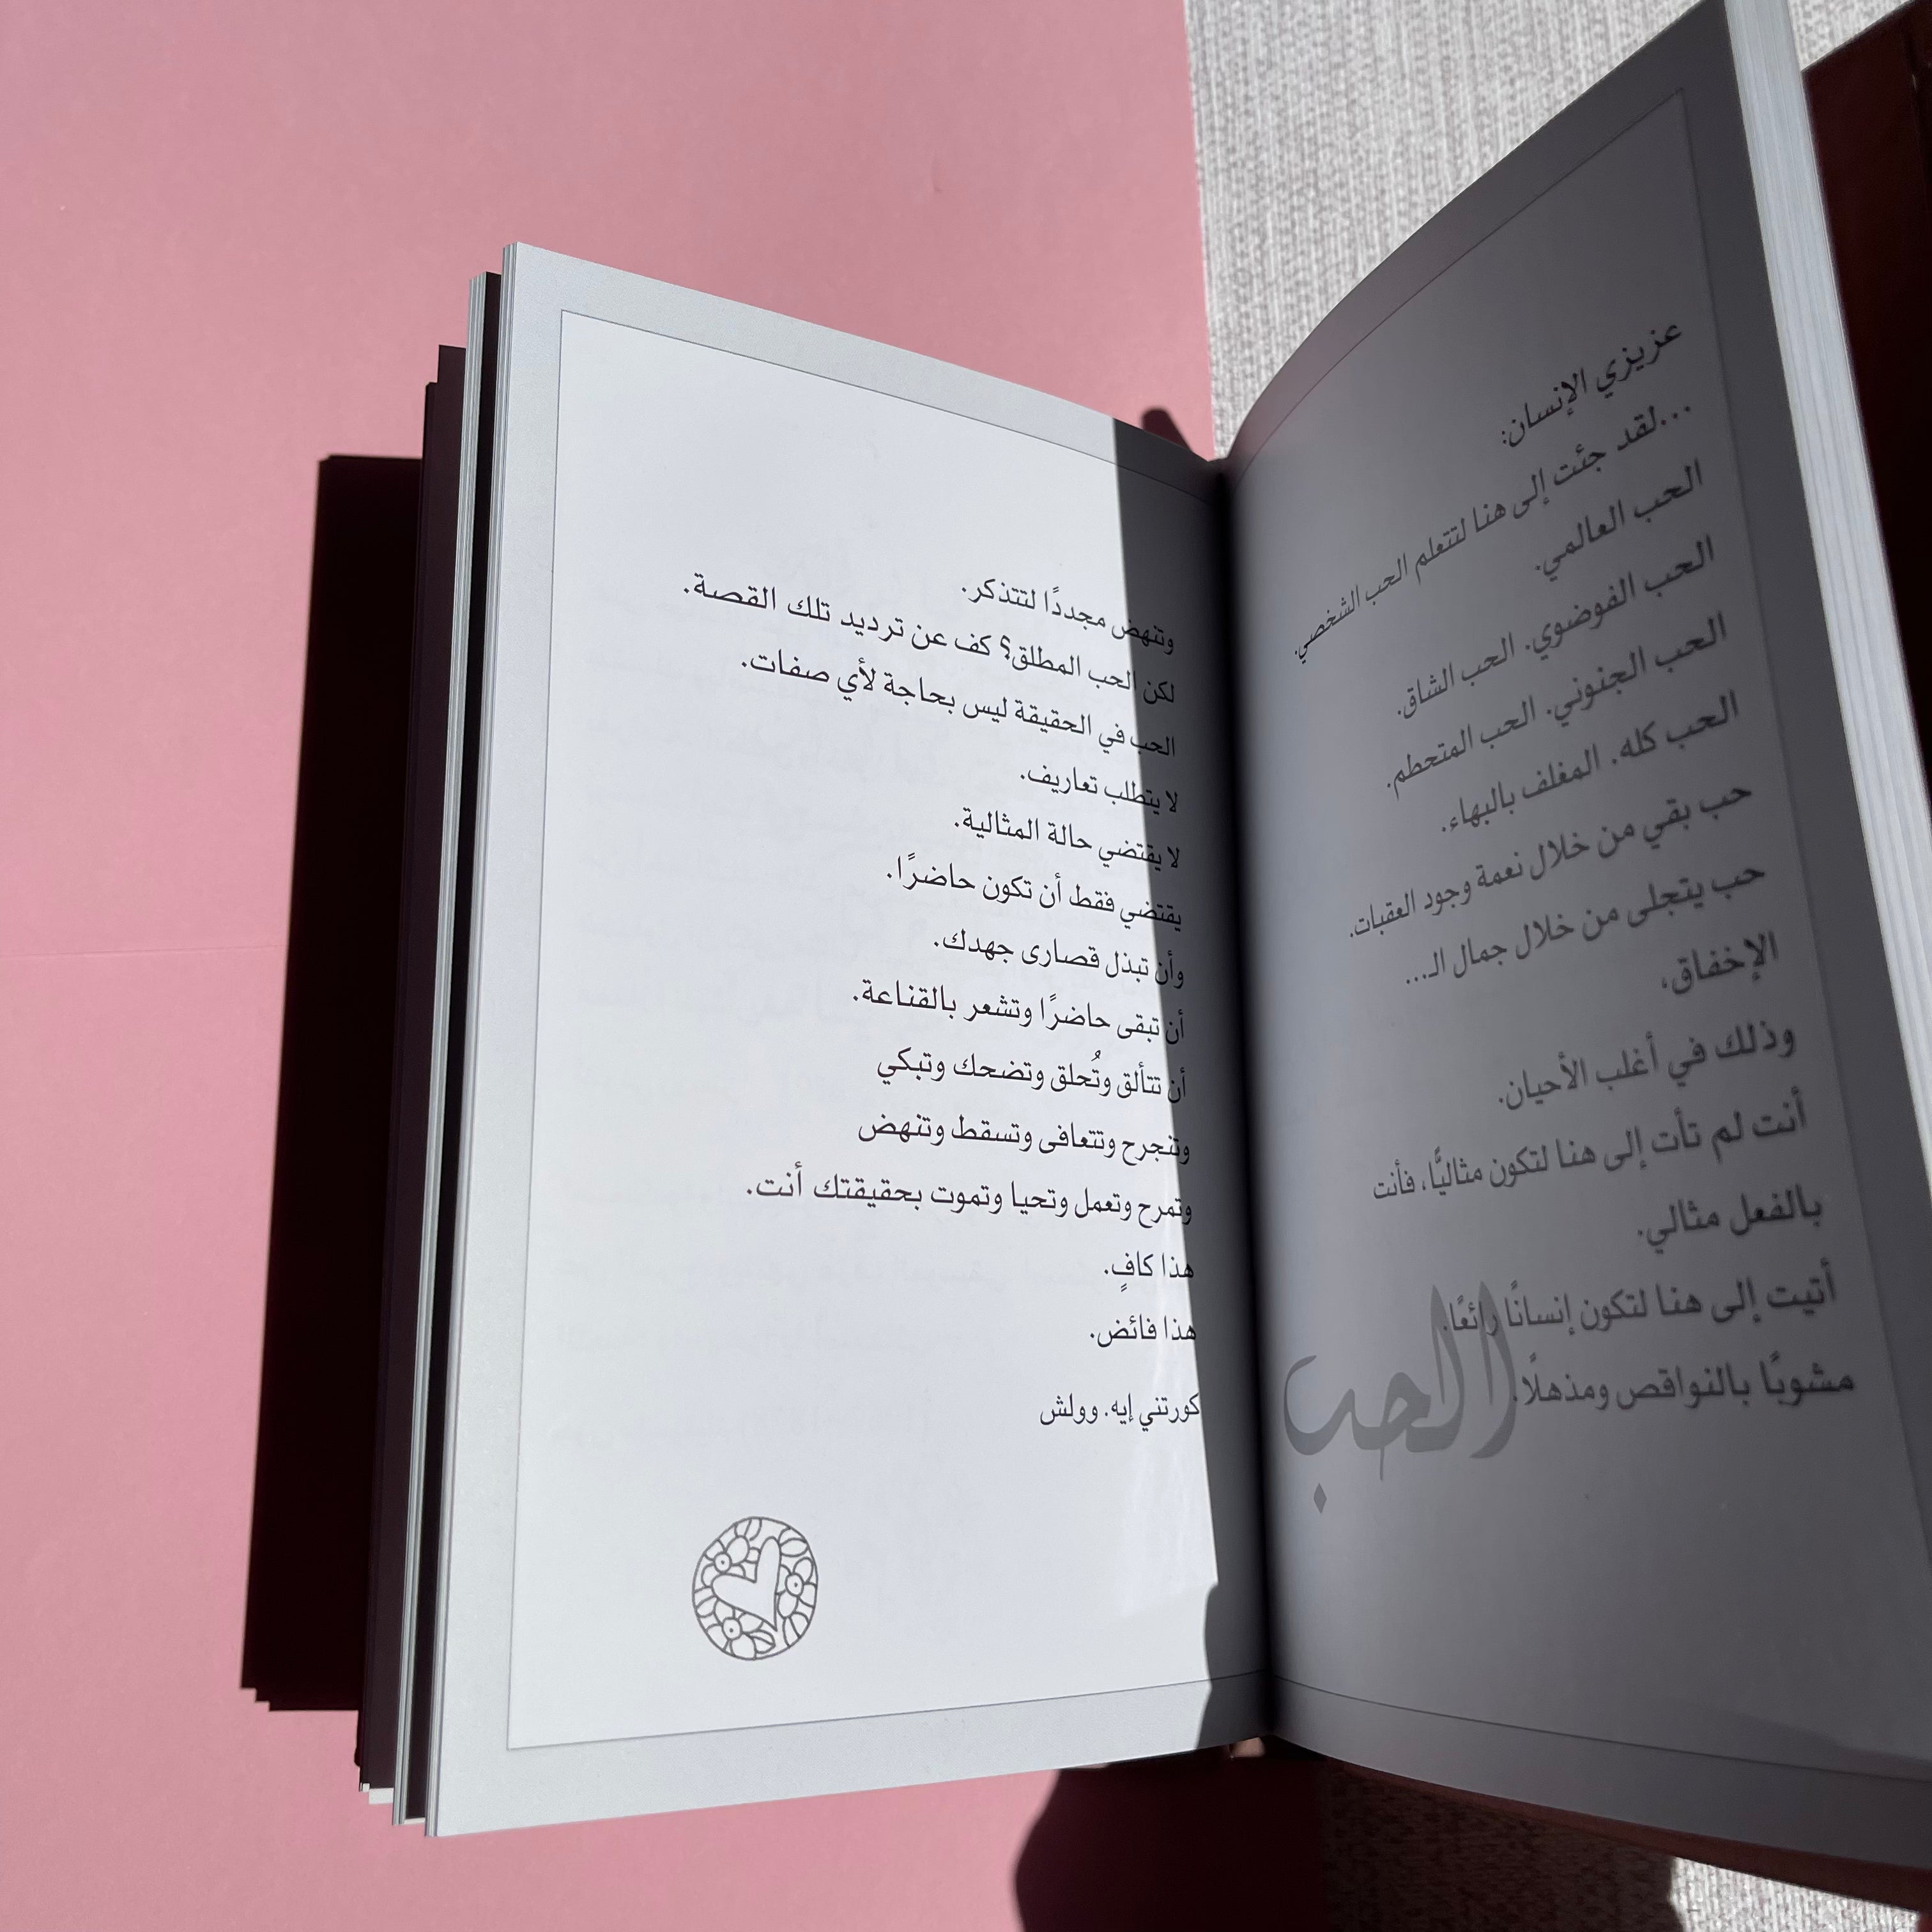 عزيزي الإنسان:
...لقد جئت إلى هنا لتتعلم الحب الشخصي.
الحب العالمي.
الحب الفوضوي. الحب الشاق.
الحب الجنوني. الحب المتحطم.
الحب كله. المغلف بالبهاء.
حب بقي من خلال نعمة وجود العقبات.
حب يتجلى من خلال جمال الـ...
الإخفاق،
وذلك في أغلب الأحيان.
أنت لم تأت إلى هنا لتكون مثاليًّا، فأنت
بالفعل مثالي.
أتيت إلى هنا لتكون إنسانًا رائعًا.
مشوبًا بالنواقص ومذهلًا.
الحب
وتنهض مجددًا لتتذكر.
لكن الحب المطلق؟ كف عن ترديد تلك القصة.
الحب في الحقيقة ليس بحاجة لأي صفات.
لا يتطلب تعاريف.
لا يقتضي حالة المثالية.
يقتضي فقط أن تكون حاضرًا.
وأن تبذل قصارى جهدك.
أن تبقى حاضرًا وتشعر بالقناعة.
أن تتألق وتُحلق وتضحك وتبكي
وتنجرح وتتعافى وتسقط وتنهض
وتمرح وتعمل وتحيا وتموت بحقيقتك أنت.
هذا كافٍ.
هذا فائض.
كورتني إيه. وولش